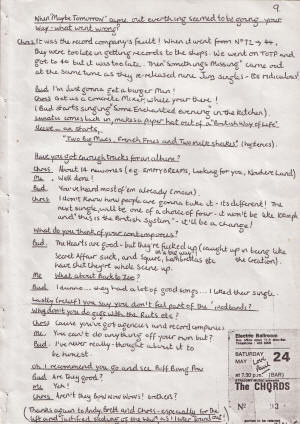 9
When "Maybe Tomorrow" came out everthing seemed to be going your
way - what went wrong?
Chris: It was the record company's fault! When it went from Nº 72 → 44,
they were too late in getting records to the shops. We went on TOTP and
got to 40 but it was too late. Then "Somethings Missing" came out
at the same time as they re-released nine Jam singles - Its ridiculous!
Bud. I'm just gonna get a burger Man!
Chris Get us a concrete Mixer, while your there!
(Bud starts singing "Some Enchanted evening" in the kitchen).
comes back in, makes a paper hat out of a "British Way of Life"
sleeve - an starts,
"Two big Macs, French Fries and Two milk shakes" (hysterics).
Have you got enough tracks for an album?
Chris: About 14 new ones (e.g. EMPTY DREAMS, Looking for you, Nowhere Land)
Me. Well done!
Bud. You've heard most of em already (moan).
Chris: I don't know how people are gonna take it - its different! The
next single will be one of a choice of four - it won't be like
and 'this is the British system' - it'll be a change!
What do you think of your contemporaries?
Bud. The Hearts are good - but they're fucked up (caught up in being like
Secret Affair suck, and Squire, the creation).
hate shit they're whole scene up.
Me What about Back to Zero?
Bud. I dunno... they had a lot of good songs... I liked their single.
Lastly (relief) you say you don't feel part of the 'modbands'?
Why don't you do gigs with the Ruts etc?
Chris Cause you've got agencies and record companies.
Me. You can't do anything off your own bat?
Bud. I've never really thought about it to
be honest.
Oh I recommend you go and see Riff Bang Pow
Bud Are they good?
Me Yeh!
Chris Aren't they Bow Wow Wow's brothers?
(Thanks again to Andy, Brett and Chris - especially for the
Electric Ballroom
SATURDAY
MAY 24
at 7.30 p.m. (BAR)
The CHORDS
Nº